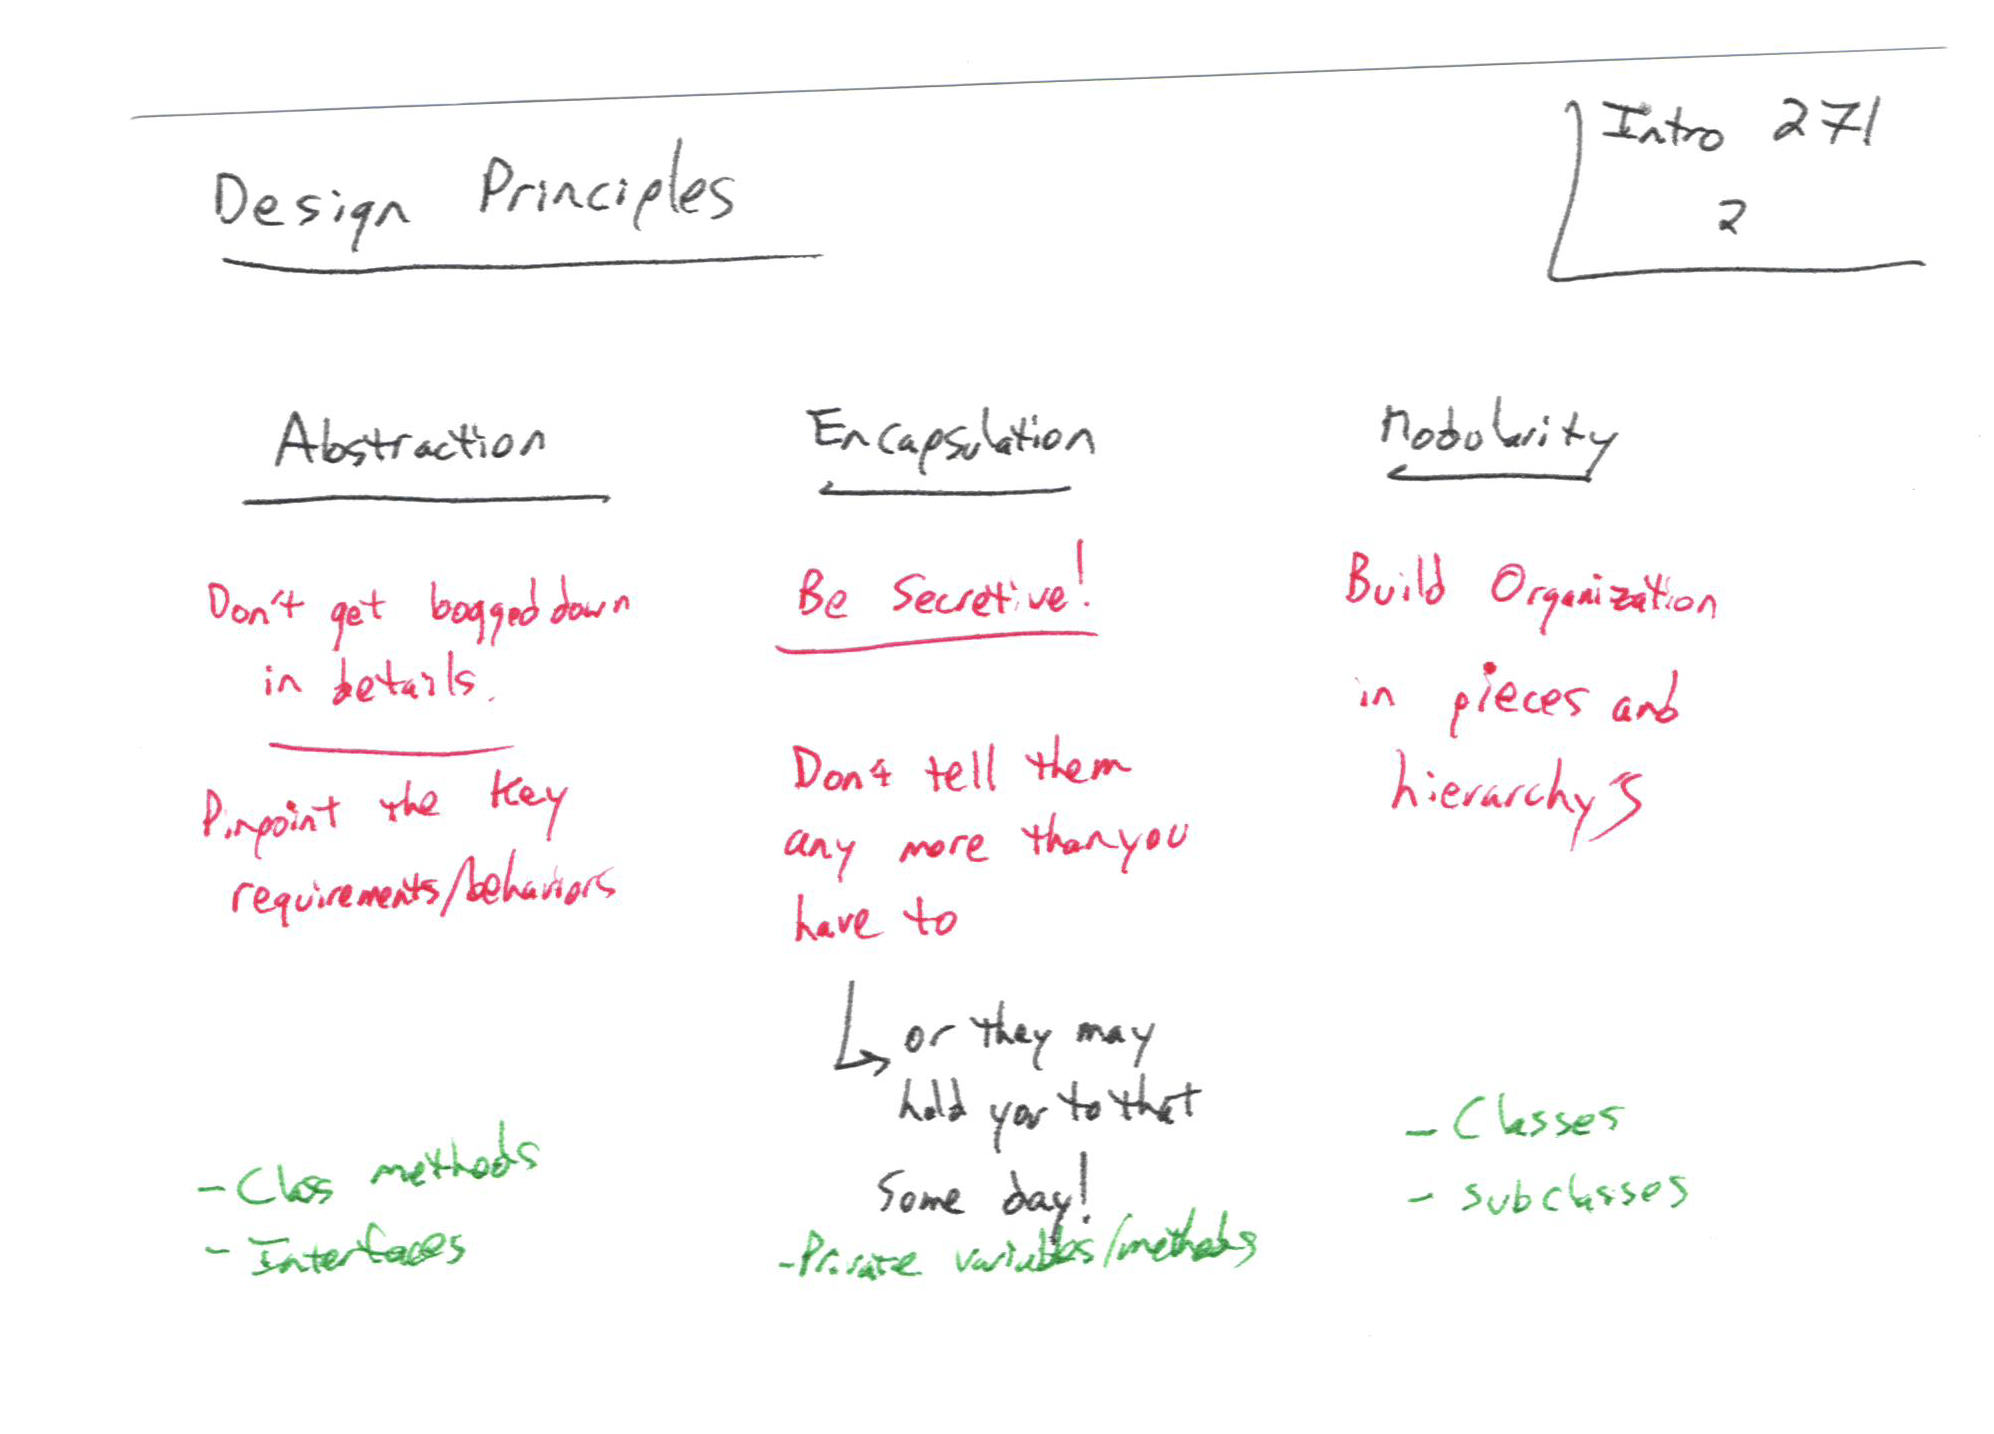 Design Principles
Intro 271
2
Abstraction
Don't get bogged down
in details.
Pinpoint the key
requirements/behaviors
- Class methods
- Interfaces
Encapsulation
Be Secretive!
Don't tell them
any more than you
have to
or they may
hold you to that
some day!
- Private variables/methods
Modularity
Build Organization
in pieces and
hierarchys
- Classes
- subclasses